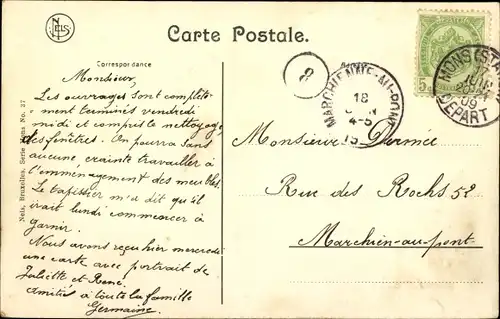 NELS
Carte Postale.
Correspondance
Monsieur,
Les ouvrages sont complète-
ment terminés vendredi
midi et compris le nettoyage
des fenêtres. On pourra sans
aucune crainte travailler à
l'emménagement des meubles.
Le tapissier m'a dit qu'il
irait lundi commencer à
garnir.
Nous avons reçu hier mercredi
une carte avec portrait de
Juliette et René.
Amitiés à toute la famille
Germaine.
Nels, Bruxelles, Serie Mons No. 37
5
MONS (STA
09
DEPART
MARCHIENNE-AU-PONT
18
4-5
Monsieur Dermée
Rue des Rochs 52
Marchien-au-pont